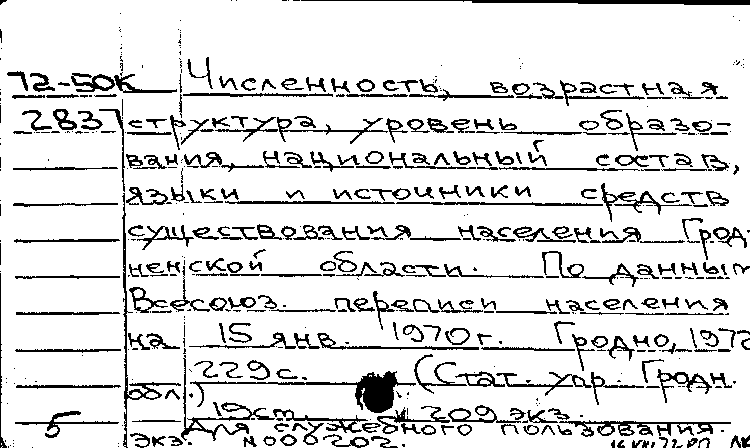 72-50К Численность, возрастная
2837 структура, уровень образо-
вания, национальный состав,
языки и источники средств
существования населения Грод-
ненской области. По данным
Всесоюз. переписи населения
на 15 янв. 1970г. Гродно, 1972
229с. (Стат. упр. Гродн.
обл.) 19см. 209 экз.
5 Для служебного пользования.
экз. №000202.